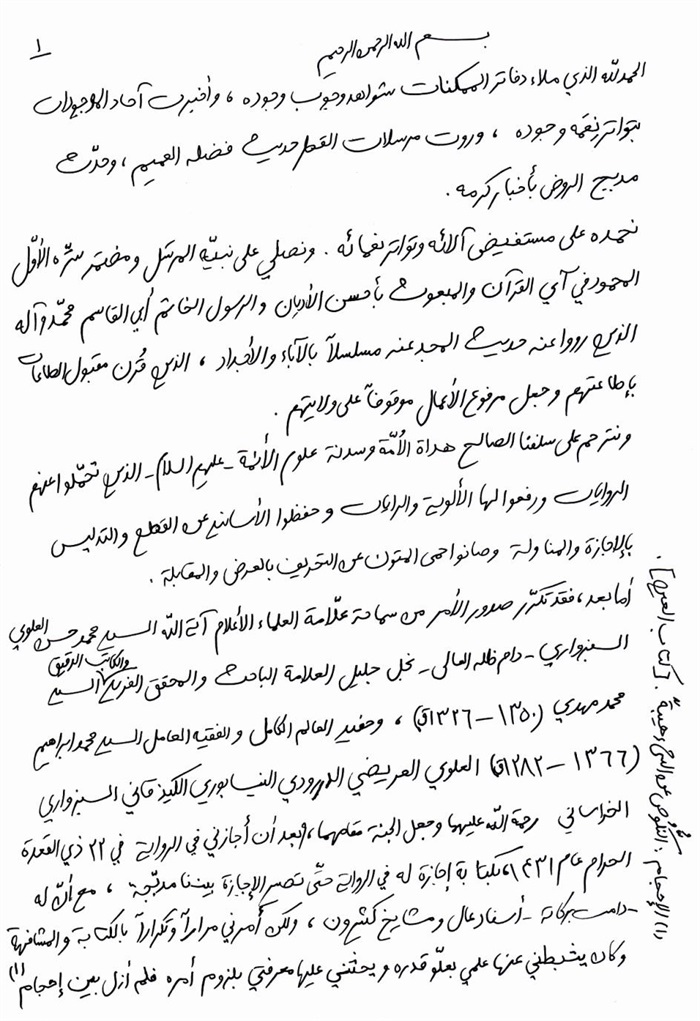 ١
بسم الله الرحمن الرحيم
الحمدلله الذي ملاء دفاتر الممكنات شواهد وجوب وجوده ، وأخبرت آحاد الموجودات
بتواتر نِعَمه وجوده ، وروت مرسلات القطر حديث فضله العميم ، وحدّث
مدبج الروض بأخبار كرمه .
نحمده على مستفيض آلائه وتواتر نعمائه . ونصلي على نبيّه المرسَل ومضمَر سرّه الأوّل
المحمود في آي القرآن والمبعوث بأحسن الأديان والرسول الخاتم أبي القاسم محمّد وآله
الذين رووا عنه حديث المجد عنه مسلسلاً بالآباء والأجداد ، الذين قُرن مقبول الطاعات
بإطاعتهم وجعل مرفوع الأعمال موقوفاً على ولايتهم .
ونترحم على سلفنا الصالح هداة الأُمّة وسدنة علوم الأئمة - عليهم السلام - الذين تحمّلوا عنهم
الروايات ورفعوا لها الألوية والرايات وحفظوا الأسانيد عن القطع والتدليس
بالإجازة والمناولة وصانوا حمى المتون عن التحريف بالعرض والمقابلة .
أما بعد ، فقد تكرّر صدور الأمر من سماحة علّامة العلماء الأعلام آية الله السيد محمد حسن العلوي
السبزواري - دام ظله العالي - نجل جليل العلامة الباحث والمحقق والكاتب الدقيق السيد
محمد مهدي (١٣٥٠ - ١٣٢٦ق) ، وحفيد العالم الكامل والفقيه العامل السيد محمد ابراهيم
(١٣٦٦ - ١٢٨٢ق) العلوي العريضي النيسابوري السبزواري
الخراساني رحمة الله عليهما وجعل الجنة مقامهما ، وبعد أن أجازني في الرواية في ٢٢ ذي القعدة
الحرام عام ١٤٣١، بكتابة إجازة له في الرواية حتّى تصير الإجازة بيننا مدبّجة ، مع أنّ له
- دامت بركاته - أسناد عال ومشايخ كثيرون ، ولكن أمرني مراراً وتكراراً بالكتابة والمشافهة
وكان يثبطني عنها علمي بعلو قدره ويحثني عليها معرفتي بلزوم أمره فلم أزل بين إحجام (١)
(١) الإحجام : النكوص عن الشيء هيبةً . [كتاب العين] .